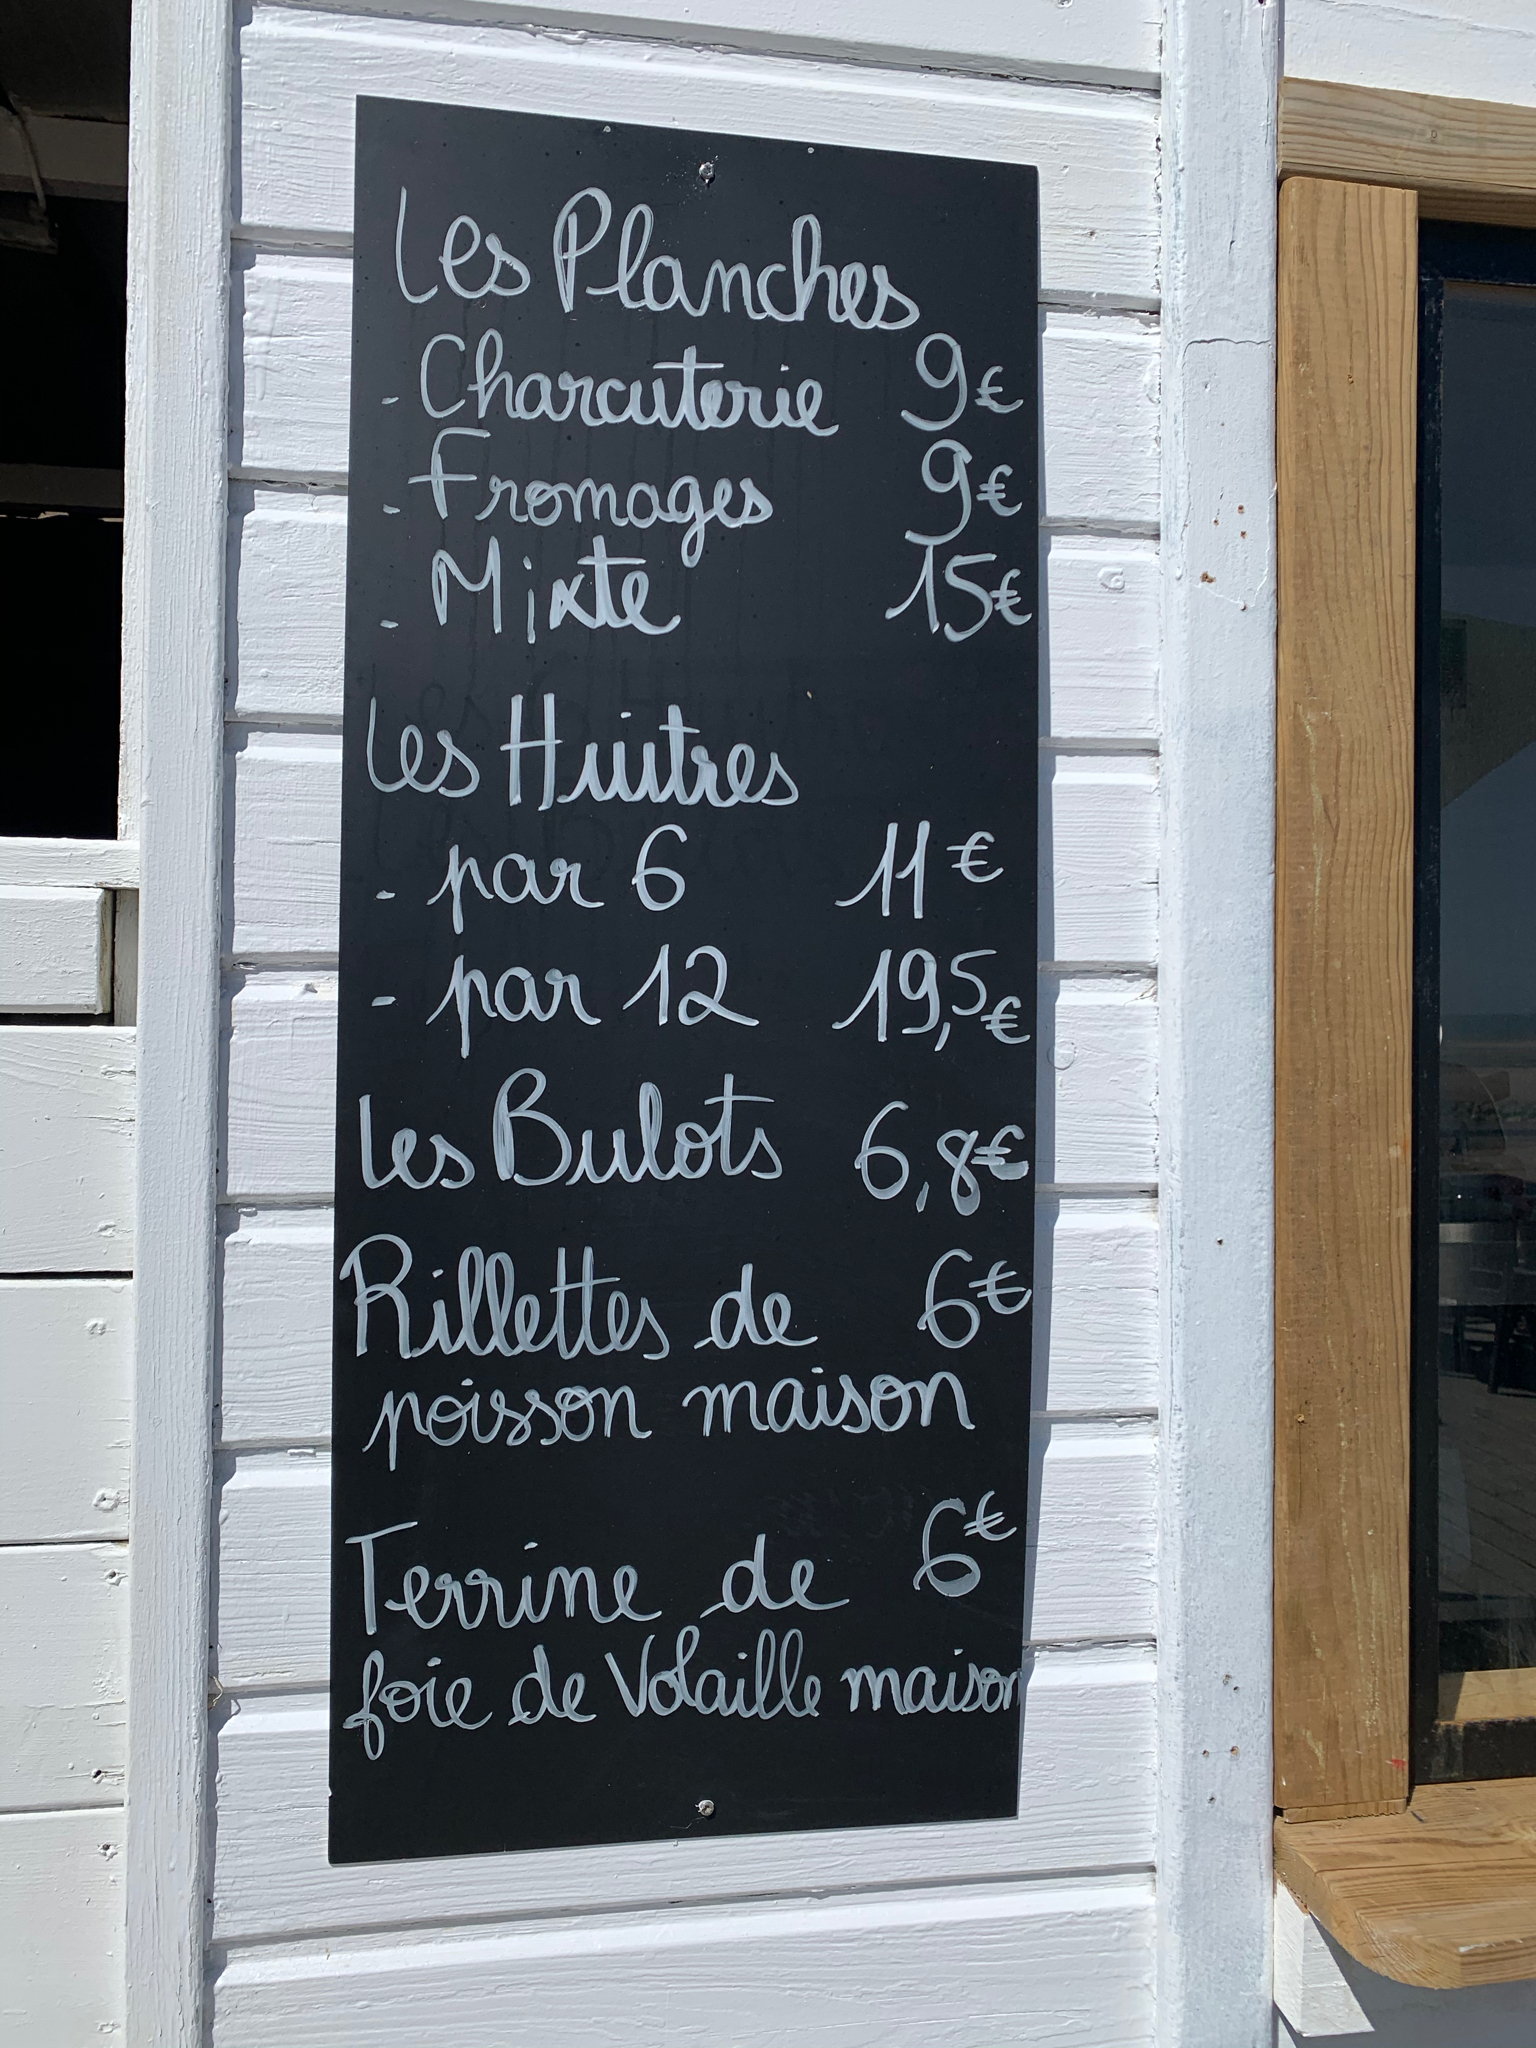 Les Planches
- Charcuterie 9€
- Fromages 9€
- Mixte 15€
Les Huitres
- par 6 11€
- par 12 19,5€
Les Bulots 6,8€
Rillettes de 6€
poisson maison
Terrine de 6€
foie de Volaille maison